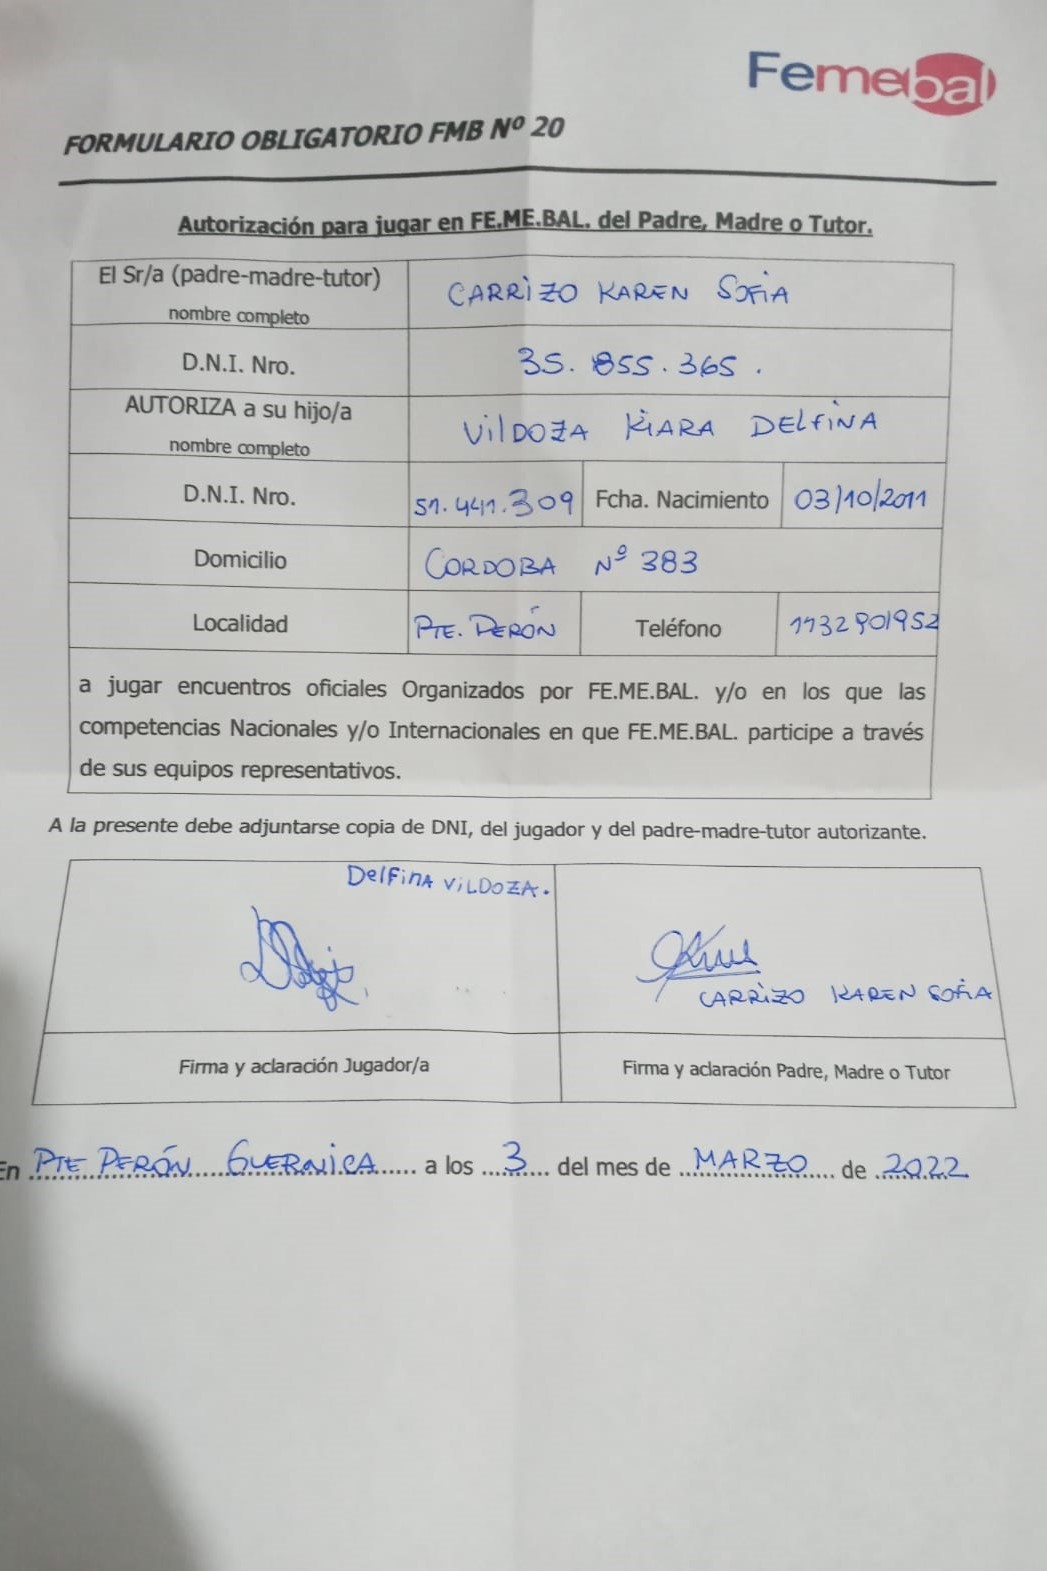 Femebal
FORMULARIO OBLIGATORIO FMB Nº 20
Autorización para jugar en FE.ME.BAL. del Padre, Madre o Tutor.
El Sr/a (padre-madre-tutor)
nombre completo
CARRIZO KAREN SOFIA
D.N.I. Nro.
35.855.365.
AUTORIZA a su hijo/a
nombre completo
VILDOZA KIARA DELFINA
D.N.I. Nro.
51.441.309
Fcha. Nacimiento
03/10/2011
Domicilio
CORDOBA Nº 383
Localidad
PTE. PERÓN
Teléfono
1132901952
a jugar encuentros oficiales Organizados por FE.ME.BAL. y/o en los que las
competencias Nacionales y/o Internacionales en que FE.ME.BAL. participe a través
de sus equipos representativos.
A la presente debe adjuntarse copia de DNI, del jugador y del padre-madre-tutor autorizante.
DelFinA ViLDOZA.
CARRIZO KAREN SOFIA
Firma y aclaración Jugador/a
Firma y aclaración Padre, Madre o Tutor
En PTE PERÓN GUERNICA a los 3 del mes de MARZO de 2022